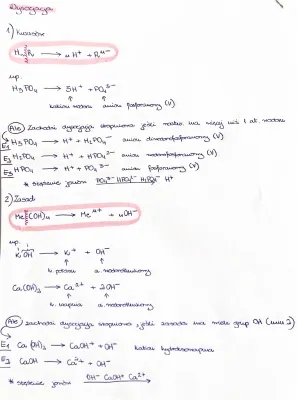 Dysocjacja
1) Kwasów
HnR → nH⁺ + Rⁿ⁻
np.
H₃PO₄ → 3H⁺ + PO₄³⁻
kation wodoru anion fosforanowy (V)
Ale zachodzi dysocjacja stopniowa jeśli ma więcej niż 1 at. wodoru
E1 H₃PO₄ → H⁺ + H₂PO₄⁻ anion diwodorofosforanowy (V)
E2 H₂PO₄ → H⁺ + HPO₄²⁻ anion wodorofosforanowy (V)
E3 HPO₄ → H⁺ + PO₄³⁻ anion fosforanowy (V)
* stężenie jonów PO₄³⁻ HPO₄²⁻ H₂PO₄⁻ H⁺
2) Zasad
Me(OH)n → Meⁿ⁺ + nOH⁻
np.
KOH → K⁺ + OH⁻
k. potasu a. wodorotlenkowy
Ca(OH)₂ → Ca²⁺ + 2OH⁻
k. wapnia a. wodorotlenkowy
Ale zachodzi dysocjacja stopniowa, jeśli zasada ma wiele grup OH (min 2)
E1 Ca(OH)₂ → CaOH⁺ + OH⁻ kation hydroksowapnia
E2 CaOH → Ca²⁺ + OH⁻
* stężenie jonów OH⁻ CaOH⁺ Ca²⁺